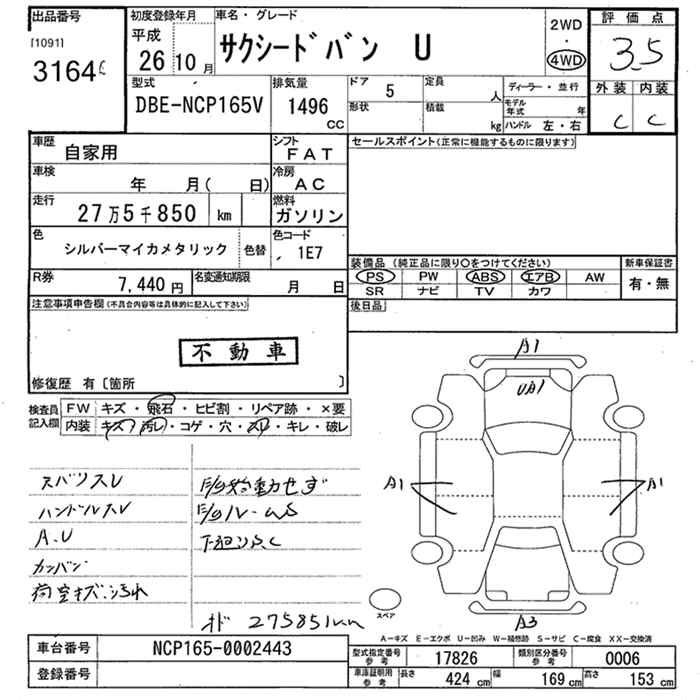 出品番号 初度登録年月 車名・グレード 2WD 評価点
[1091] 平成 ・
3164 26 10月 サクシードバン U 4WD 3.5
型式 排気量 ドア 5 定員 人 ディーラー・並行 外装 内装
DBE-NCP165V 1496 CC 形状 積載 kg モデル年式 年 C C
ハンドル 左・右
車歴 自家用 シフト FAT セールスポイント(正常に機能するものに限ります)
車検 年 月( 日) 冷房 AC
走行 27万5千850 km 燃料 ガソリン
色 シルバーマイカメタリック 色替 色コード 1E7
装備品(純正品に限り○をつけてください) 新車保証書
R券 7,440円 名変通知期限 月 日 PS PW ABS エアB AW 有・無
SR ナビ TV カワ
注意事項申告欄(不具合内容等は具体的に記入して下さい) 後日品
不動車
修復歴 有〔箇所 〕
検査員記入欄 FW キズ・飛石・ヒビ割・リペア跡・×要
内装 キズ・汚れ・コゲ・穴・スレ・キレ・破レ
A1
UA1
A1 A1
スバリスレ E/g始動せず
ハンドルスレ E/gルームS
A.U 下廻りS.C
カンバン
荷室キズ・汚れ
オド 275851km
スペア
A3
A-キズ E-エクボ U-凹み W-補修跡 S-サビ C-腐食 XX-交換済
車台番号 NCP165-0002443 型式指定番号 参考 17826 類別区分番号 参考 0006
登録番号 車庫証明用 参考 長さ 424 cm 幅 169 cm 高さ 153 cm